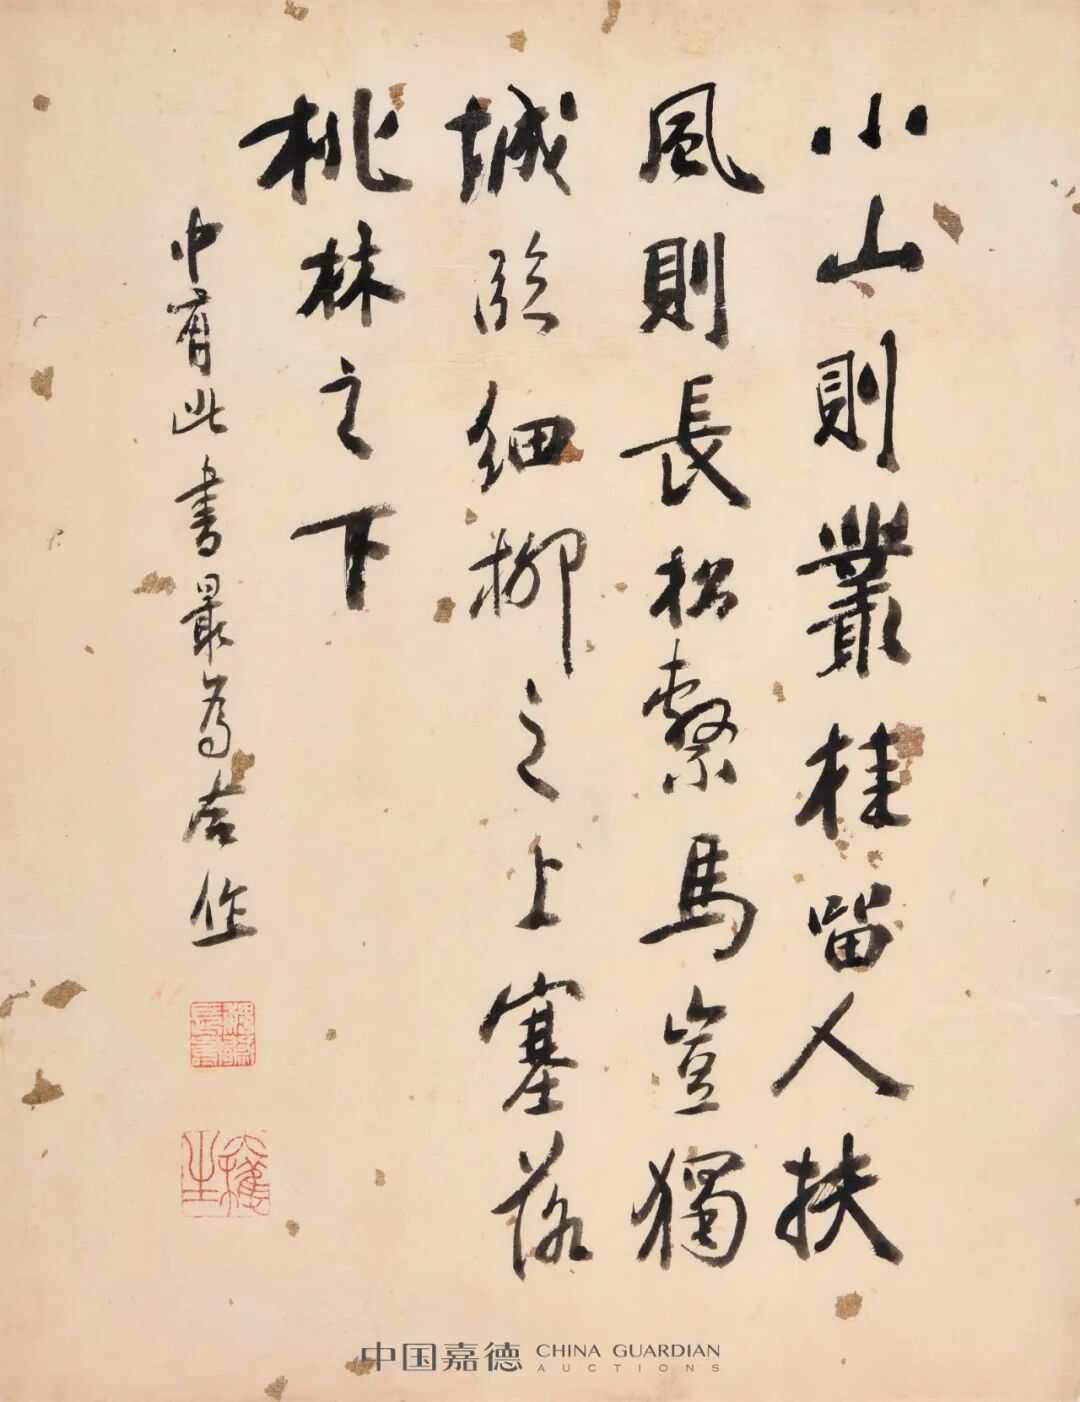 小山則叢桂留人扶
風則長松繫馬豈獨
城臨細柳之上塞落
桃林之下
中有此書最為吉作
中国嘉德 CHINA GUARDIAN
AUCTIONS